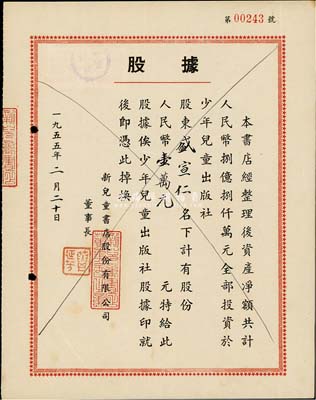 第 00243 號
據股
本書店經整理後資產凈額共計
人民幣捌億捌仟萬元全部投資於
少年兒童出版社
股東盛宣仁名下計有股份
人民幣壹萬元 元特給此
股據俟少年兒童出版社股據印就
後即憑此掉換
新兒童書店股份有限公司
董事長
一九五五年二月二十日